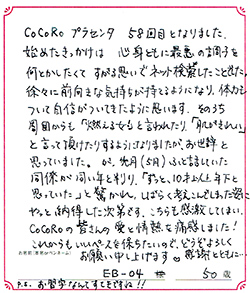 CoCoRo プラセンタ 58回目となりました。
始めたきっかけは 心身ともに最悪の調子を
何とかしたくて すがる思いでネット検索したことでした。
徐々に前向きな気持ちが持てるようになり、体力も
ついて自信がついてきたように思います。そのうち
周囲からも「燃える女」と言われたり、「肌がきれい」
と言って頂けたりするようになりましたが、お世辞と
思っていました。が、先月(5月)ふと話していた
同僚が同い年と判り、「ずっと、10才以上年下と
思っていた」と驚かれ、しばらく考えこんでしまった姿に
やっと納得した次第です。こちらも感激してしまい、
CoCoRoの皆さんの愛と情熱に痛感しました!
これからもいいペースを保ちたいので、どうぞよろしく
お願い申し上げます 感謝とともに…
お名前(匿名orペンネーム)
EB-04
50歳
P.S. お習字なんてすてきですね!!